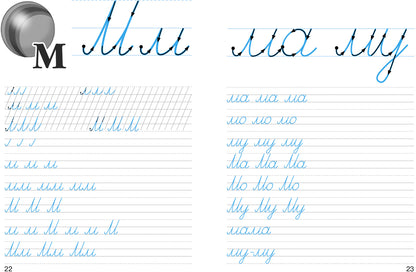 М М м
м м м
м м м
м м м
мм мм мм
М М М
м М м м м М
Мм Мм Мм
22
ма му
ма ма ма
мо мо мо
му му му
Ма Ма Ма
Мо Мо Мо
Му Му Му
мама
му-му
23